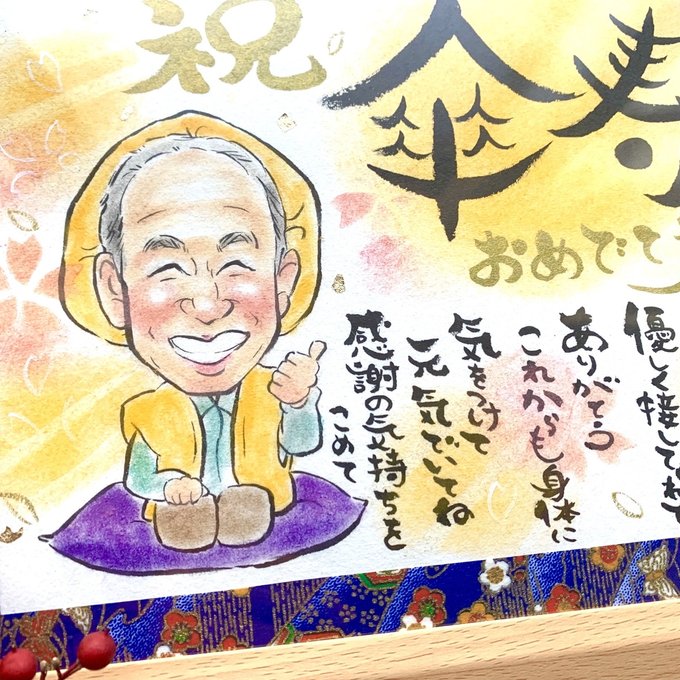 祝
傘寿
おめでとう
優しく接してくれて
ありがとう
これからも身体に
気をつけて
元気でいてね
感謝の気持ちを
こめて